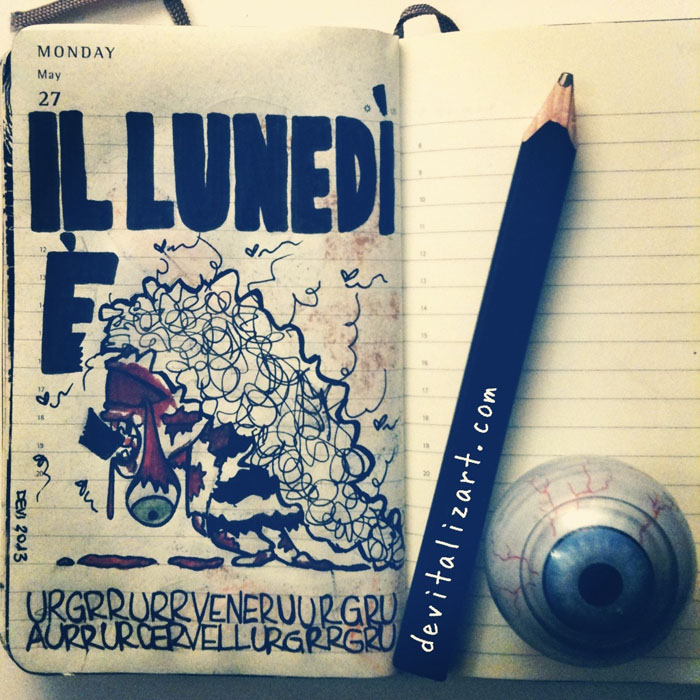 MONDAY
May
27
IL LUNEDÌ
È
DEVI 2013
URGRRURRVENERUURGRU
AURRURCERVELLURGRRGRU
devitalizart.com